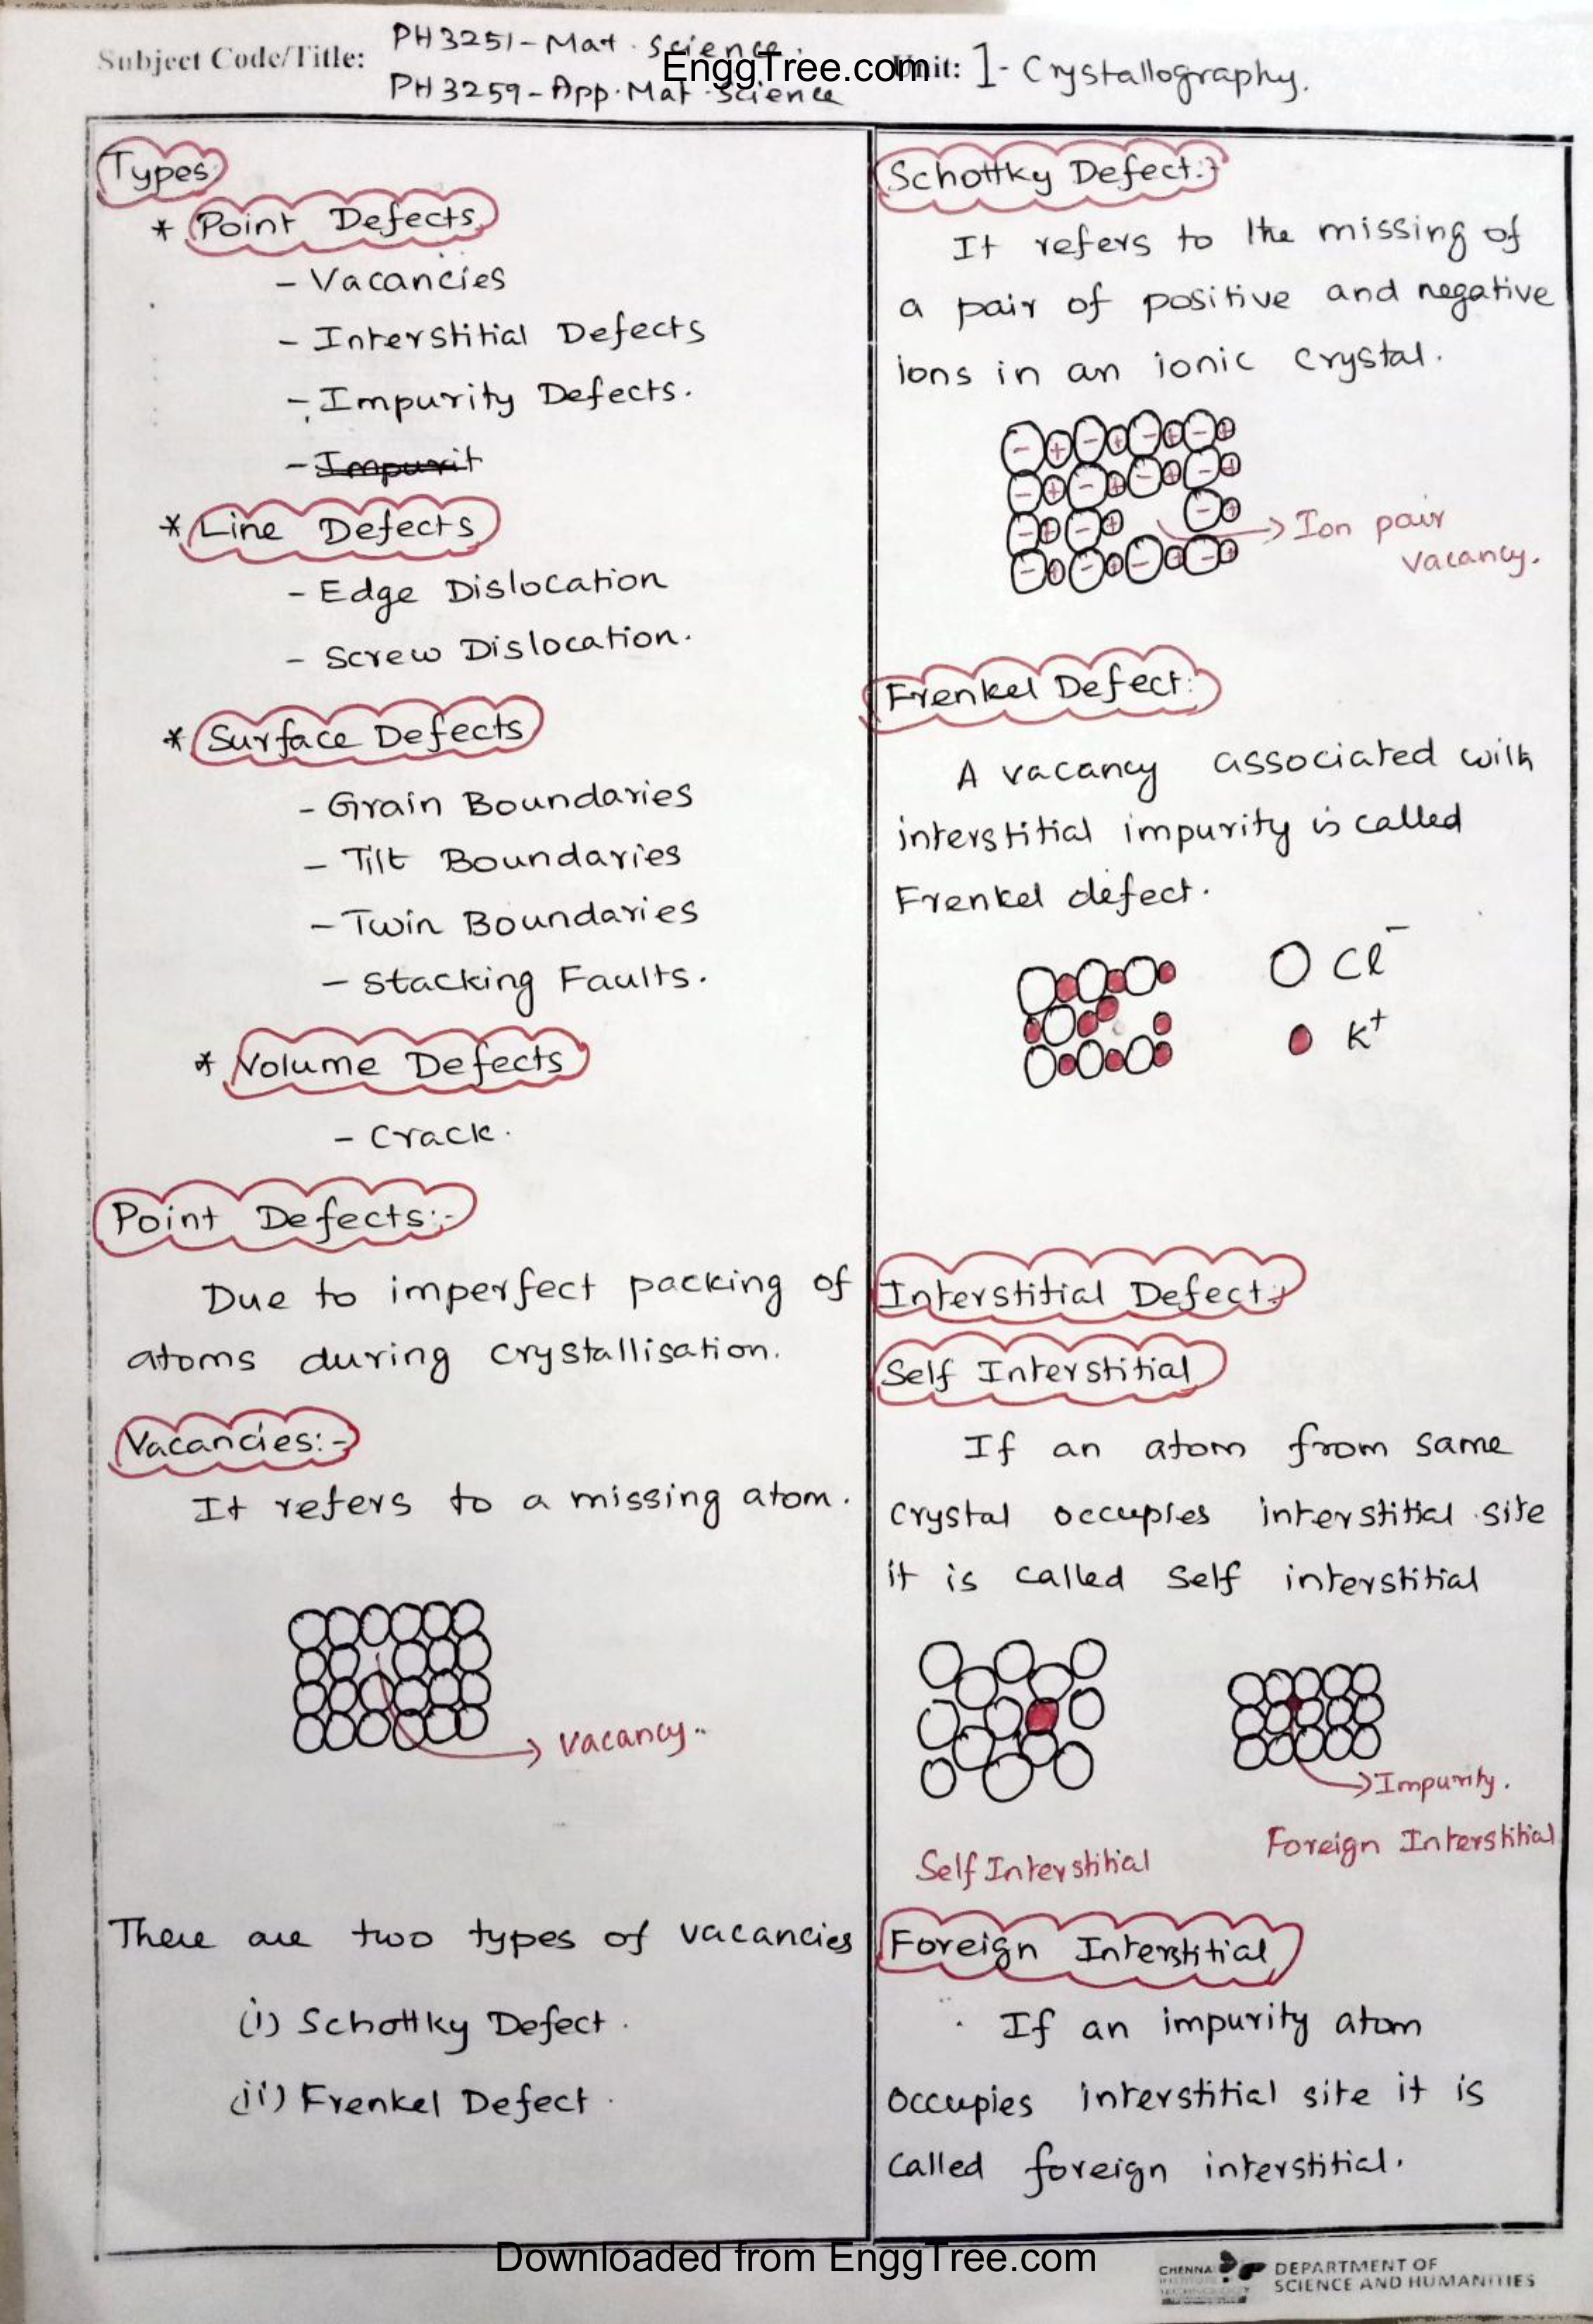 Subject Code/Title: PH3251-Mat. science.
PH3259-App.Mat.Science
EnggTree.com
Unit: 1- Crystallography.
Types:
* Point Defects
- Vacancies
- Interstitial Defects
- Impurity Defects.
- Impurit
* Line Defects
- Edge Dislocation
- Screw Dislocation.
* Surface Defects
- Grain Boundaries
- Tilt Boundaries
- Twin Boundaries
- Stacking Faults.
* Volume Defects
- Crack.
Point Defects:-
Due to imperfect packing of
atoms during crystallisation.
Vacancies:-
It refers to a missing atom.
Vacancy.
There are two types of vacancies
(i) Schottky Defect.
(ii) Frenkel Defect.
Schottky Defect:-
It refers to the missing of
a pair of positive and negative
ions in an ionic crystal.
- + - + - + - +
- + - + - + - +
- + - + - +
- + - + - + - +
Ion pair
vacancy.
Frenkel Defect:
A vacancy associated with
interstitial impurity is called
Frenkel defect.
Cl⁻
K⁺
Interstitial Defect:-
Self Interstitial
If an atom from same
crystal occupies interstitial site
it is called self interstitial
Impurity.
Self Interstitial
Foreign Interstitial
Foreign Interstitial
If an impurity atom
occupies interstitial site it is
called foreign interstitial.
Downloaded from EnggTree.com
CHENNAI
DEPARTMENT OF
SCIENCE AND HUMANITIES